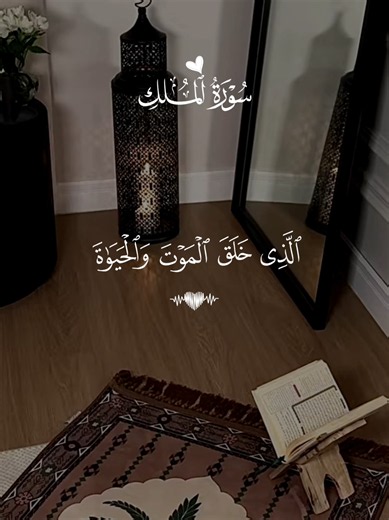 سُوْرَةُ الْمُلك
ٱلَّذِى خَلَقَ ٱلْمَوْتَ وَٱلْحَيَوٰةَ